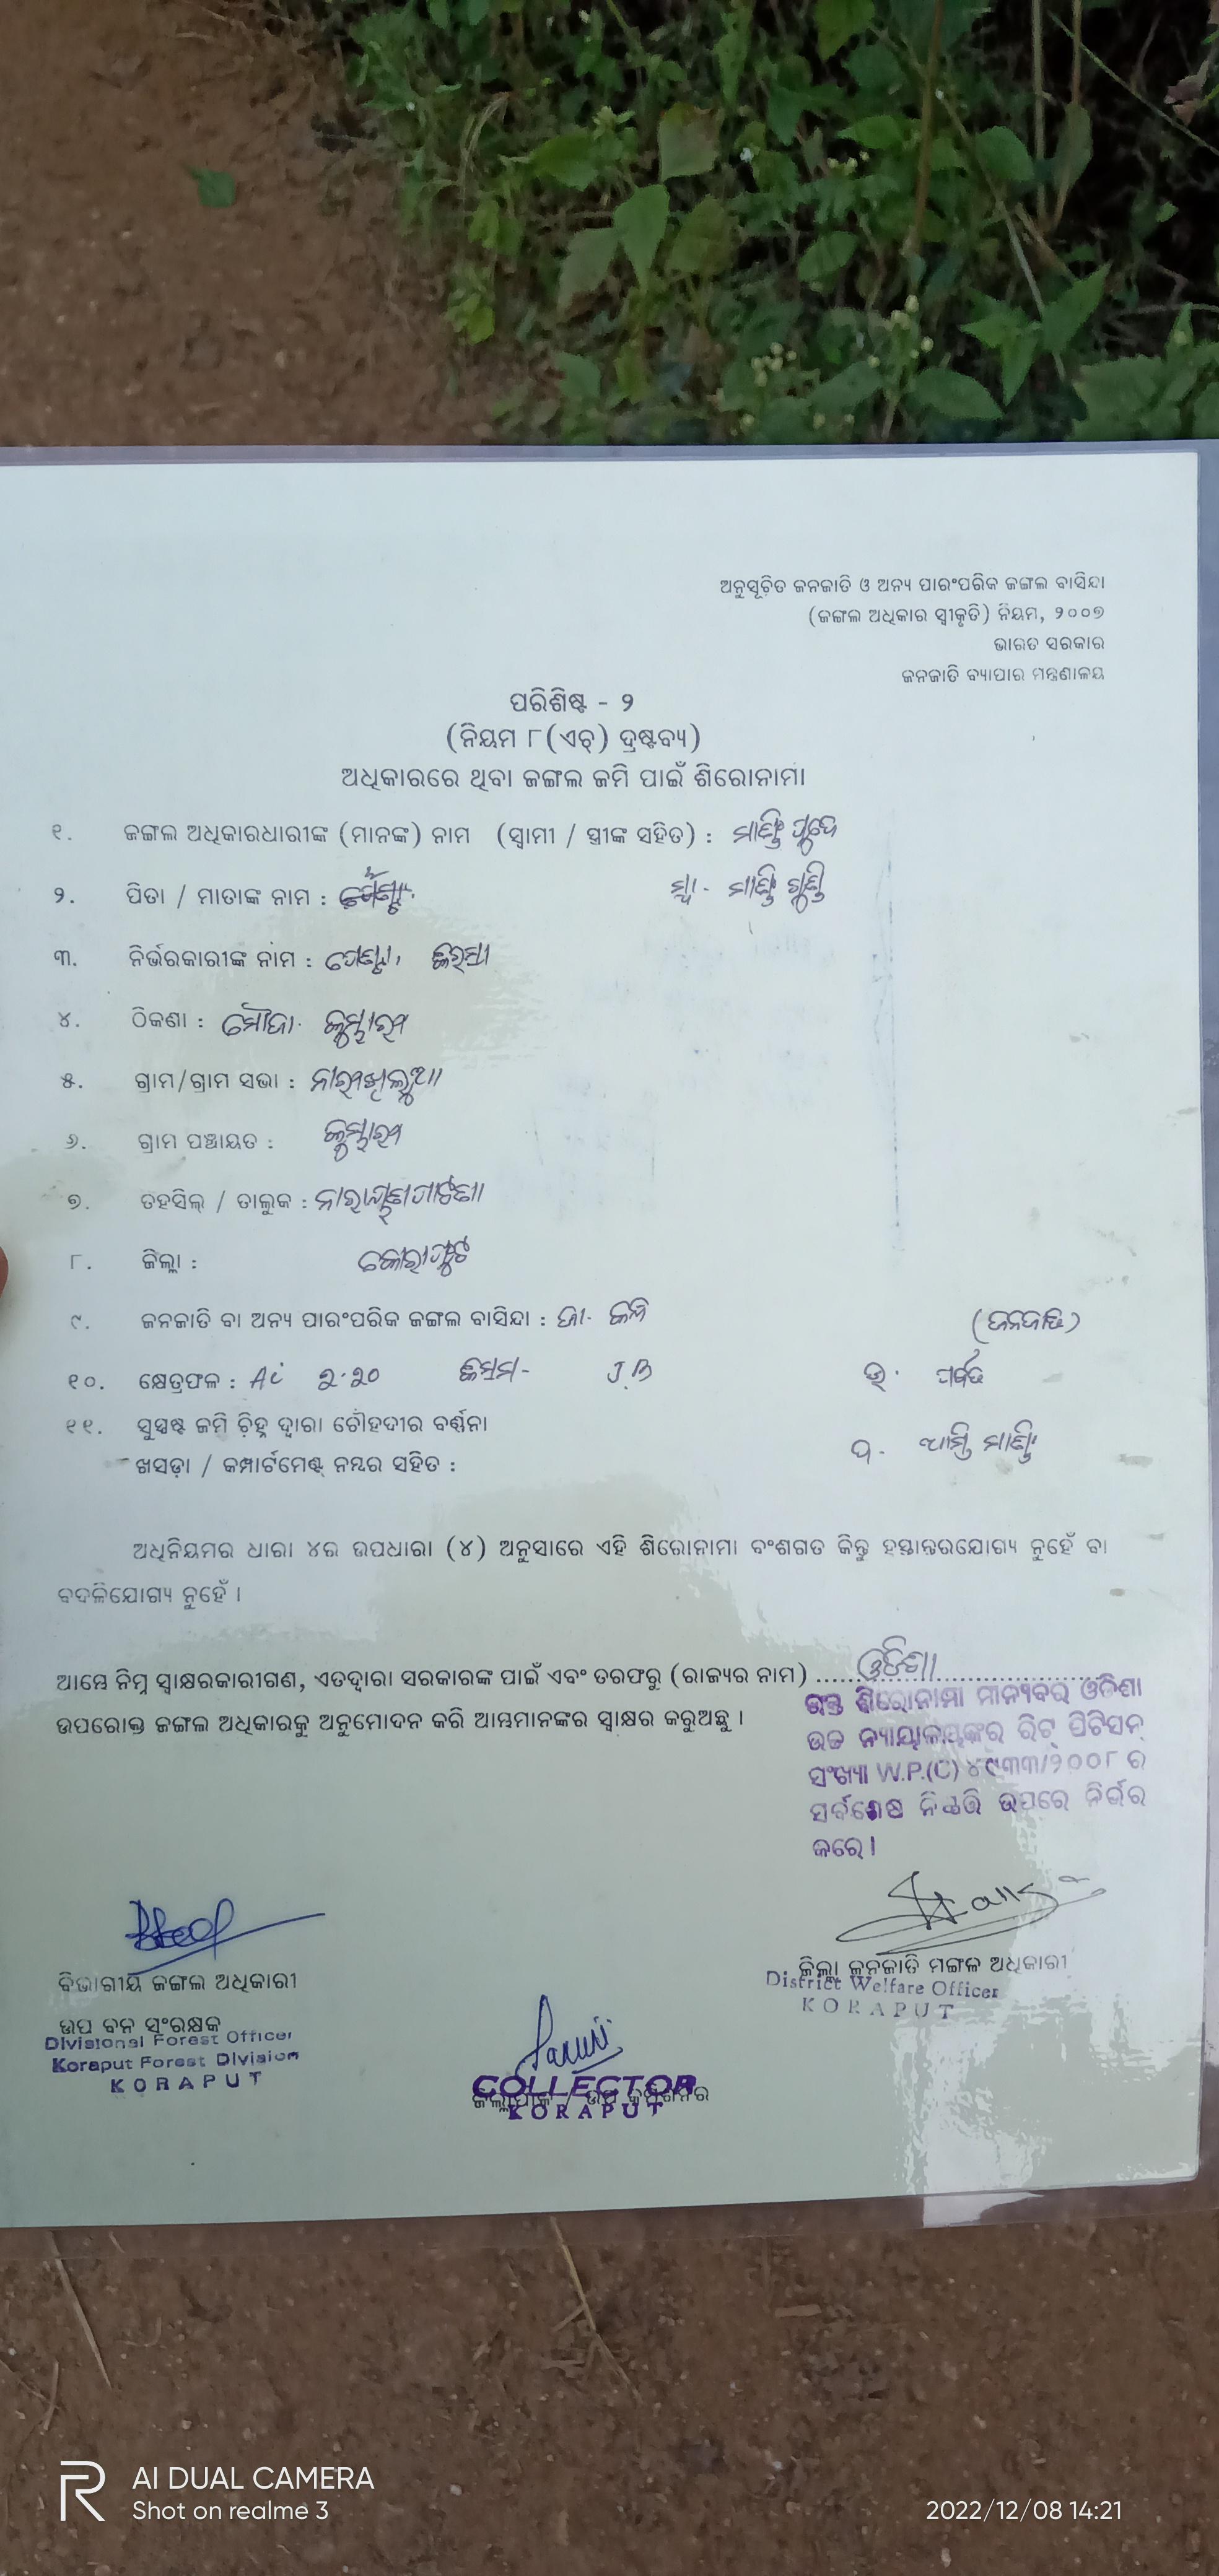 ଅନୁସୂଚିତ ଜନଜାତି ଓ ଅନ୍ୟ ପାରଂପରିକ ଜଙ୍ଗଲ ବାସିନ୍ଦା
(ଜଙ୍ଗଲ ଅଧିକାର ସ୍ୱୀକୃତି) ନିୟମ, ୨୦୦୭
ଭାରତ ସରକାର
ଜନଜାତି ବ୍ୟାପାର ମନ୍ତ୍ରଣାଳୟ
ପରିଶିଷ୍ଟ - ୨
(ନିୟମ ୮(ଏଚ୍) ଦ୍ରଷ୍ଟବ୍ୟ)
ଅଧିକାରରେ ଥିବା ଜଙ୍ଗଲ ଜମି ପାଇଁ ଶିରୋନାମା
୧. ଜଙ୍ଗଲ ଅଧିକାରଧାରୀଙ୍କ (ମାନଙ୍କ) ନାମ (ସ୍ୱାମୀ / ସ୍ତ୍ରୀଙ୍କ ସହିତ) : ମାଣ୍ଡି
୨. ପିତା / ମାତାଙ୍କ ନାମ : ମାଣ୍ଡି
୩. ନିର୍ଭରକାରୀଙ୍କ ନାମ :
୪. ଠିକଣା : ମୌଜା
୫. ଗ୍ରାମ/ଗ୍ରାମ ସଭା :
୬. ଗ୍ରାମ ପଞ୍ଚାୟତ :
୭. ତହସିଲ୍ / ତାଲୁକ : ନାରାୟଣପାଟଣା
୮. ଜିଲ୍ଲା : କୋରାପୁଟ
୯. ଜନଜାତି ବା ଅନ୍ୟ ପାରଂପରିକ ଜଙ୍ଗଲ ବାସିନ୍ଦା : ଜା. କନ୍ଧ (ଜନଜାତି)
୧୦. କ୍ଷେତ୍ରଫଳ : Ac ୨.୨୦ କିସମ- J.B ଉ. ପର୍ବତ
୧୧. ସୁସ୍ପଷ୍ଟ ଜମି ଚିହ୍ନ ଦ୍ୱାରା ଚୌହଦୀର ବର୍ଣ୍ଣନା
ଖସଡ଼ା / କମ୍ପାର୍ଟମେଣ୍ଟ୍ ନମ୍ବର ସହିତ : ଦ. ମାଣ୍ଡି
ଅଧିନିୟମର ଧାରା ୪ର ଉପଧାରା (୪) ଅନୁସାରେ ଏହି ଶିରୋନାମା ବଂଶଗତ କିନ୍ତୁ ହସ୍ତାନ୍ତରଯୋଗ୍ୟ ନୁହେଁ ବା
ବଦଳିଯୋଗ୍ୟ ନୁହେଁ ।
ଆମ୍ଭେ ନିମ୍ନ ସ୍ୱାକ୍ଷରକାରୀଗଣ, ଏତଦ୍ୱାରା ସରକାରଙ୍କ ପାଇଁ ଏବଂ ତରଫରୁ (ରାଜ୍ୟର ନାମ) ..... ଓଡିଶା .....
ଉପରୋକ୍ତ ଜଙ୍ଗଲ ଅଧିକାରକୁ ଅନୁମୋଦନ କରି ଆମ୍ଭମାନଙ୍କର ସ୍ୱାକ୍ଷର କରୁଅଛୁ ।
ଉକ୍ତ ଶିରୋନାମା ମାନ୍ୟବର ଓଡିଶା
ଉଚ୍ଚ ନ୍ୟାୟାଳୟଙ୍କର ରିଟ୍ ପିଟିସନ୍
ସଂଖ୍ୟା W.P.(C) ୪୯୩୩/୨୦୦୮ ର
ସର୍ବଶେଷ ନିଷ୍ପତ୍ତି ଉପରେ ନିର୍ଭର
କରେ ।
ବିଭାଗୀୟ ଜଙ୍ଗଲ ଅଧିକାରୀ
ଉପ ବନ ସଂରକ୍ଷକ
Divisional Forest Officer
Koraput Forest Division
KORAPUT
ଜିଲ୍ଲା ଜନଜାତି ମଙ୍ଗଳ ଅଧିକାରୀ
District Welfare Officer
KORAPUT
COLLECTOR
ଜିଲ୍ଲାପାଳ / ଉପ କମିଶନର
KORAPUT
AI DUAL CAMERA
Shot on realme 3
2022/12/08 14:21